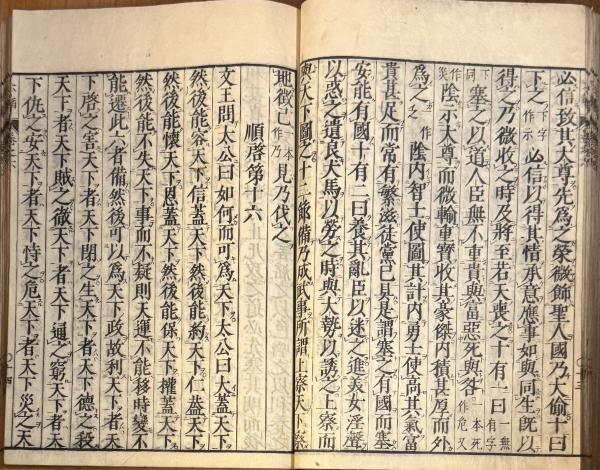 必信致其大尊先為之榮微飾聖人國乃大偷十曰
下之必信以得其情承意應事如與同生既以
得之乃微收之時及將至若天喪之十有一曰一無有字
塞之以道人臣無不重貴與富惡死與咎一本死作危又
陰示大尊而微輸重寶收其豪傑内積甚厚而外
為之陰内智士使圖其計内勇士使高其氣富
貴甚足而常有繁滋徒黨已具是謂塞之有國而塞
安能有國十有二曰養其亂臣以迷之進美女淫聲
以惑之遺良犬馬以勞之時與大勢以誘之上察而
與天下圖之十二節備乃成武事所謂上察天下察
地徵已一本作乃見乃伐之
順啓第十六
文王問太公曰如何而可為天下太公曰大蓋天下
然後能容天下信蓋天下然後能約天下仁蓋天下
然後能懷天下恩蓋天下然後能保天下權蓋天下
然後能不失天下事而不疑則天運不能移時變不
能遷此六者備然後可以為天下政故利天下者天
下啓之害天下者天下閉之生天下者天下德之殺
天下者天下賊之徹天下者天下通之窮天下者天
下仇之安天下者天下恃之危天下者天下災之天